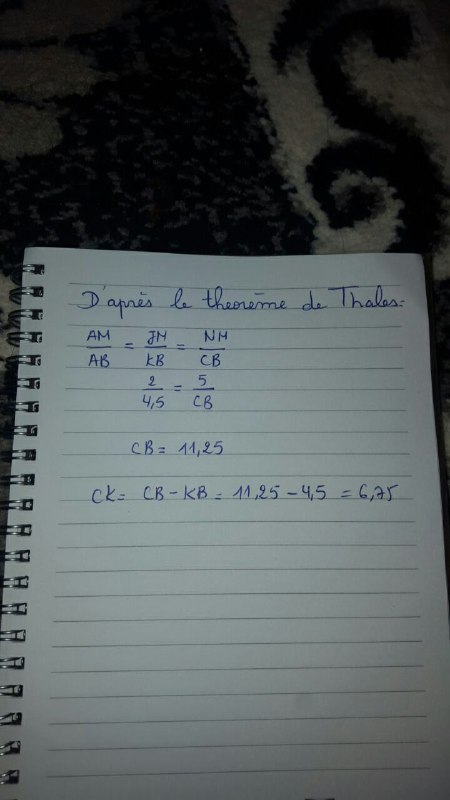 D'après le theorème de Thales:
AM/AB = JM/KB = NM/CB
2/4,5 = 5/CB
CB = 11,25
CK = CB - KB = 11,25 - 4,5 = 6,75